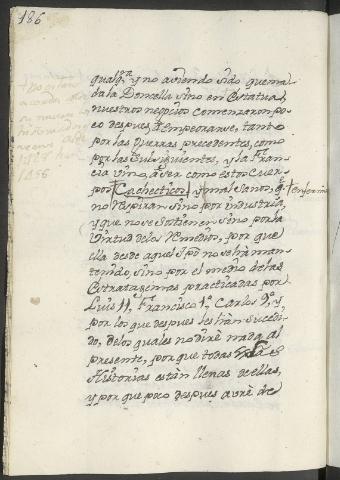 186
qualq.ra y no aviendo sido quema
da la Doncella sino en Estatua,
nuestros negocios comenzaron po
co despues â empeorarse, tanto
por las Guerras precedentes, como
por las subsiguientes, y la Fran
cia vino â ser como estos Cuer
pos † Cachecticos, y mal sanos, q.e † enfermi
no respiran sino por industria,
y que no se sostienen sino por la
Virtud de los remedios, por que
ella desde aquel tpõ no se ha man
tenido, sino por el medio de las
estratagemas practicadas por
Luis 11, Francisco 1.º Carlos 9.º, y
por los que despues les hàn sucedi
do, de los quales no dirè nada al
presente, por que todas las
Historias estàn llenas de ellas,
y por que poco despues avrè de